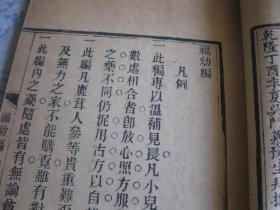 福幼編
凡例
一此編專以溫補見長凡小兒
數處相合者卽放心照方服
之藥不同仍泥用古方以自
一此編凡鹿茸人參等貴重難
及無力之家不能購寬雖有對
一此編內之藥隨處皆有無論貧
福幼編
乾隆丁酉季夏